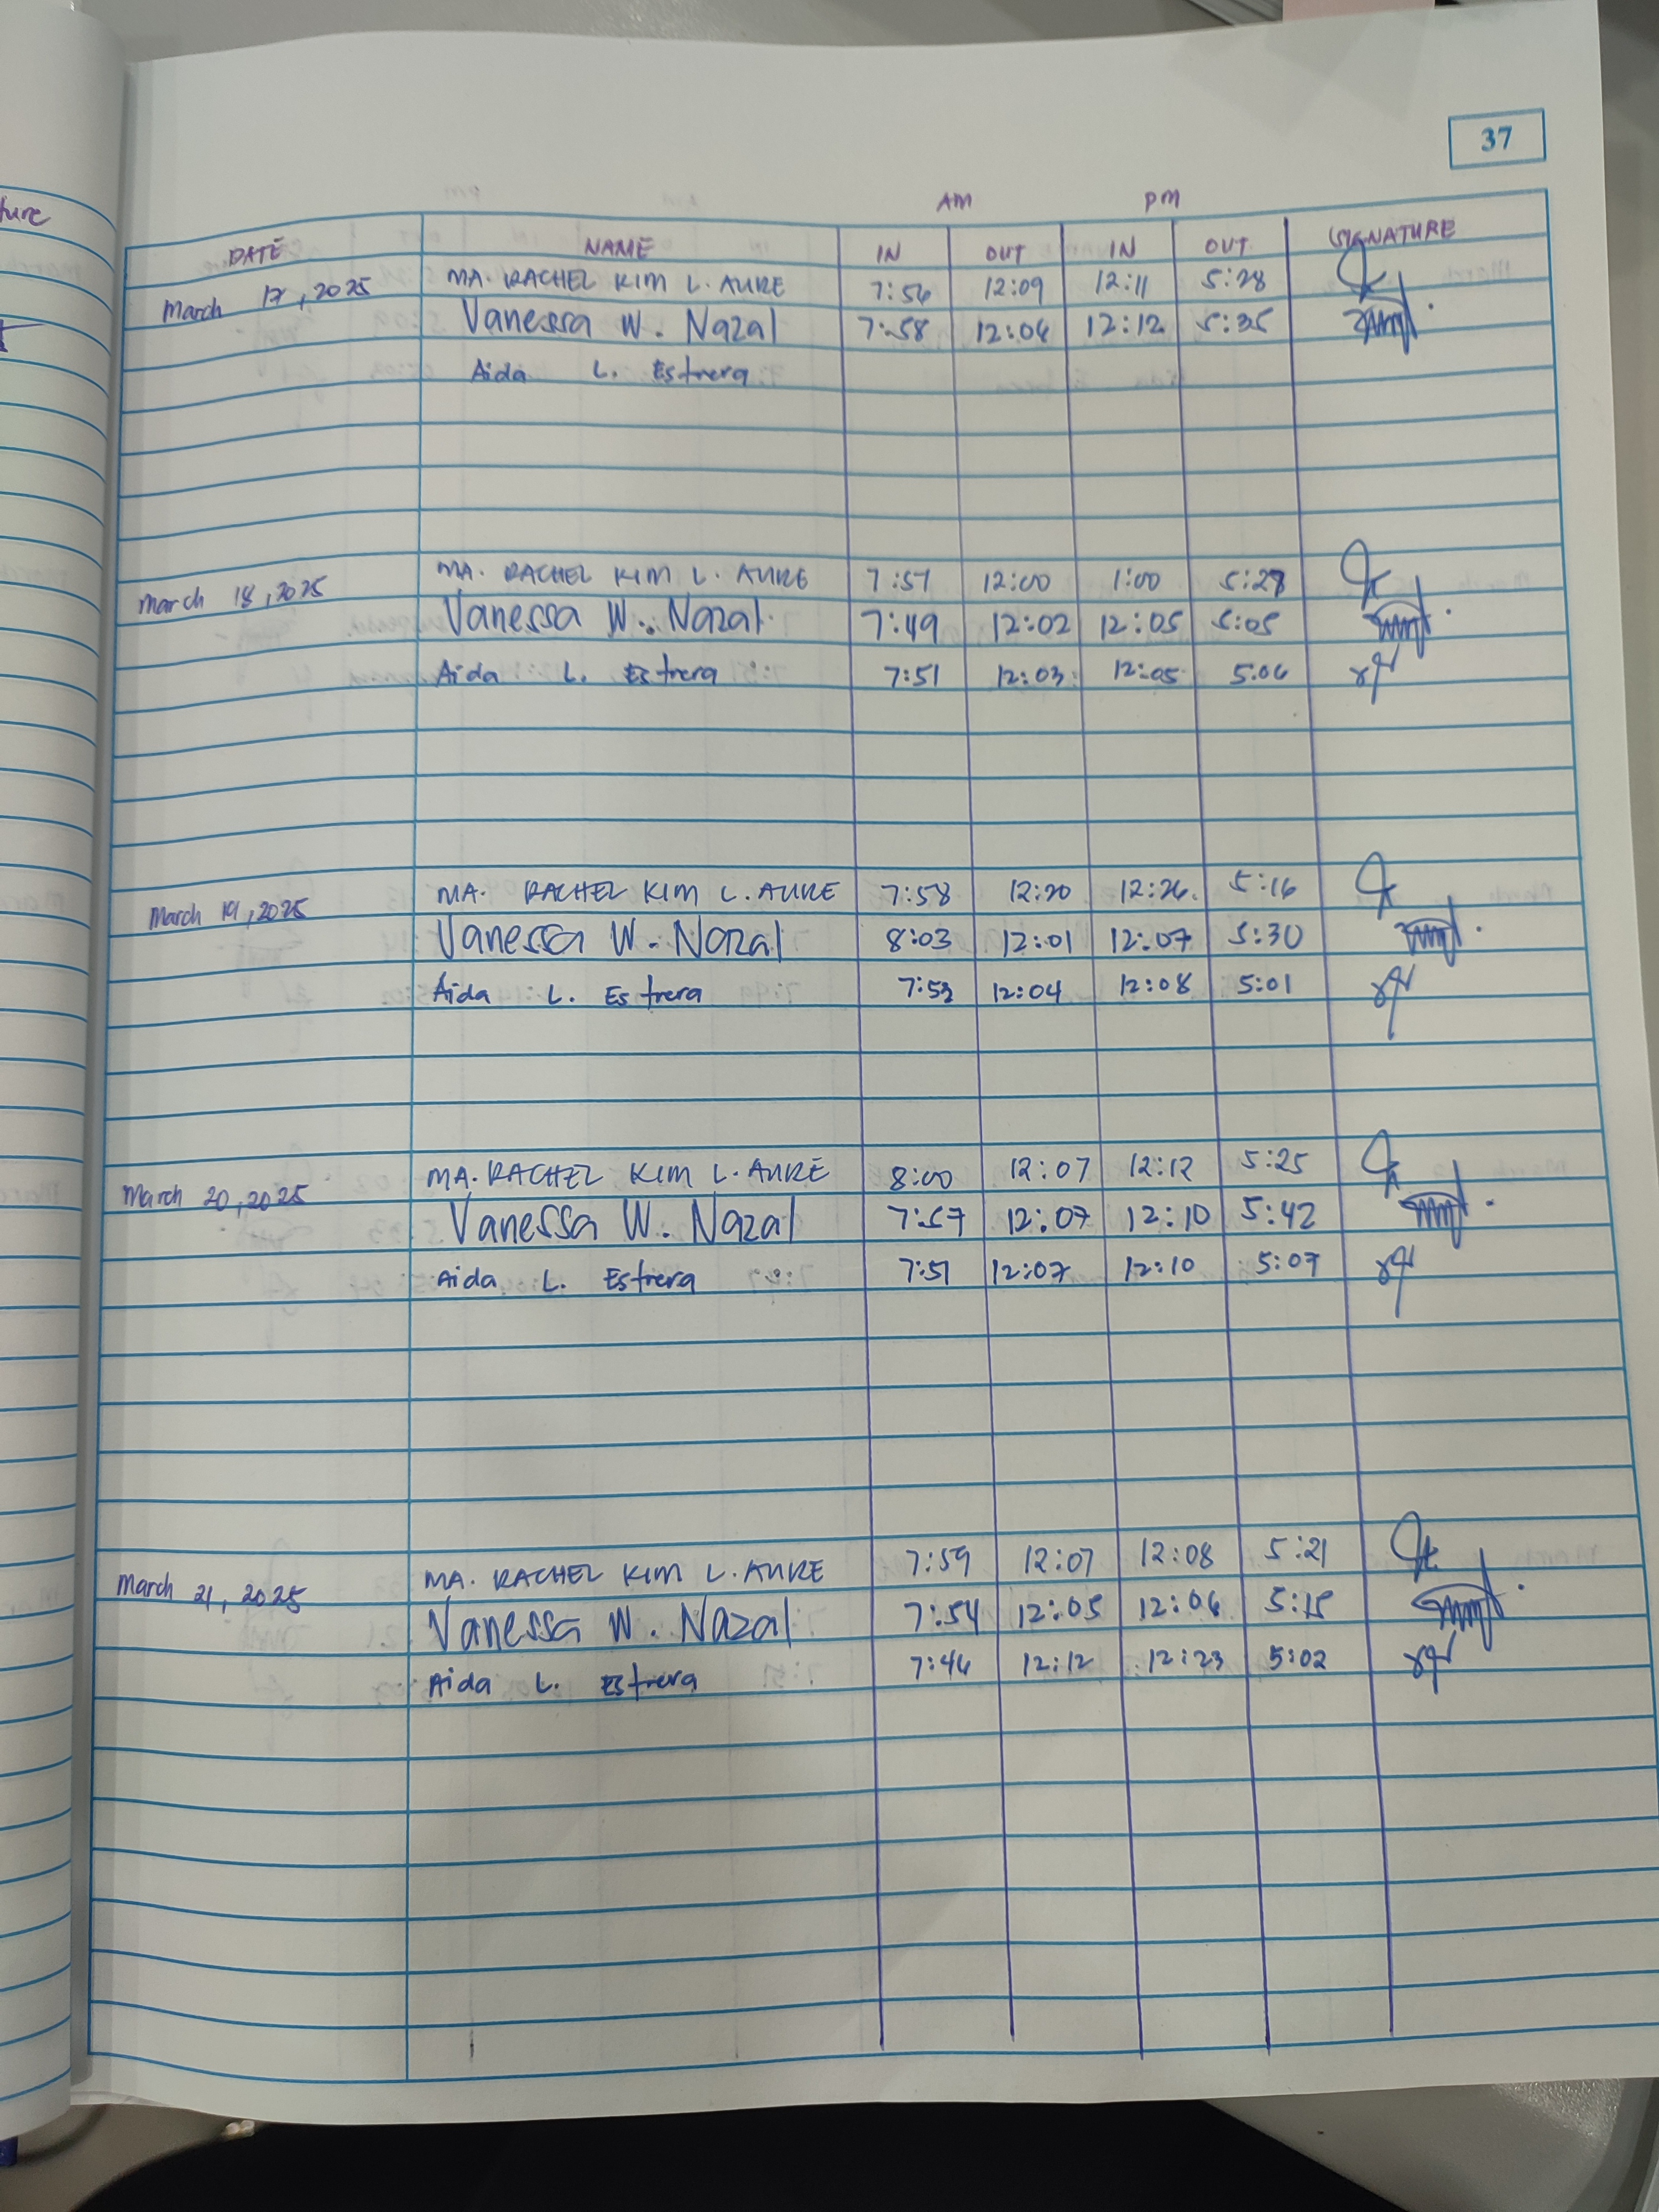 ture
37
AM PM
DATE NAME IN OUT IN OUT SIGNATURE
March 17, 2025 MA. RACHEL KIM L. AURE 7:56 12:09 12:11 5:28
Vanessa W. Nazal 7:58 12:06 12:12 5:35
Aida L. Estrera
March 18, 2025 MA. RACHEL KIM L. AURE 7:57 12:00 1:00 5:28
Vanessa W. Nazal 7:49 12:02 12:05 5:05
Aida L. Estrera 7:51 12:03 12:05 5:06
March 19, 2025 MA. RACHEL KIM L. AURE 7:58 12:20 12:26 5:16
Vanessa W. Nazal 8:03 12:01 12:07 5:30
Aida L. Estrera 7:53 12:04 12:08 5:01
March 20, 2025 MA. RACHEL KIM L. AURE 8:00 12:07 12:12 5:25
Vanessa W. Nazal 7:57 12:07 12:10 5:42
Aida L. Estrera 7:51 12:07 12:10 5:07
March 21, 2025 MA. RACHEL KIM L. AURE 7:59 12:07 12:08 5:21
Vanessa W. Nazal 7:54 12:05 12:06 5:15
Aida L. Estrera 7:46 12:12 12:23 5:02